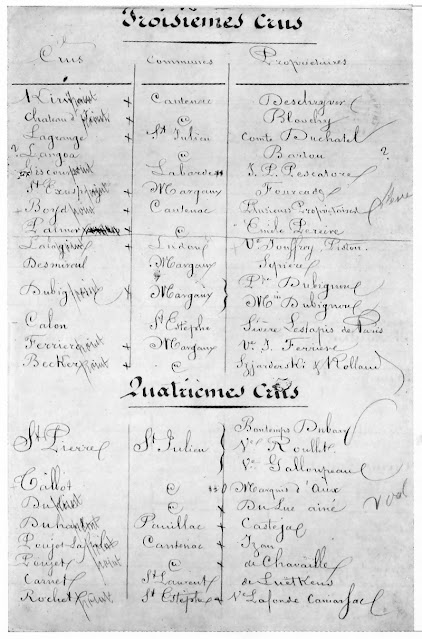 Troisièmes Crus
Crus Communes Propriétaires
Kirv point x Cantenac Deschryver
Chateau d' point + @ Blanchy
Lagrange + St Julien Comte Duchatel
? Langoa @ Barton ?
Giscours point Labarde J. P. Pescatore
St Exup point x Margaux Fourcade
Boyd point + Cantenac Plusieurs Propriétaires
Palmer + @ Emile Pereire
Lalagune x Ludon Ve Jouffroy Piston
Desmirail Margaux Sipiere
Dubig point x Margaux } Pre Dubignon
Mn Dubignon
Calon St Estèphe Sévère Lestapis de Paris
Ferriere point x Margaux Ve J. Ferriere
Becker point @ Szjarderski & Rolland
Quatrièmes Crus
St Pierre St Julien } Bontemps Dubarry
Ve Roullet
Ve Galloupeau
Tallot @ Marquis d'Aux
Du point @ + Du Luc ainé
Duhar point Pauillac + Castéja
Poujet Lassal point Cantenac + Izan
Poujet point @ + de Chavaille
Carnet St Laurent + de Luëtkens
Rochet point St Estèphe Ve Lafonde Camarsac